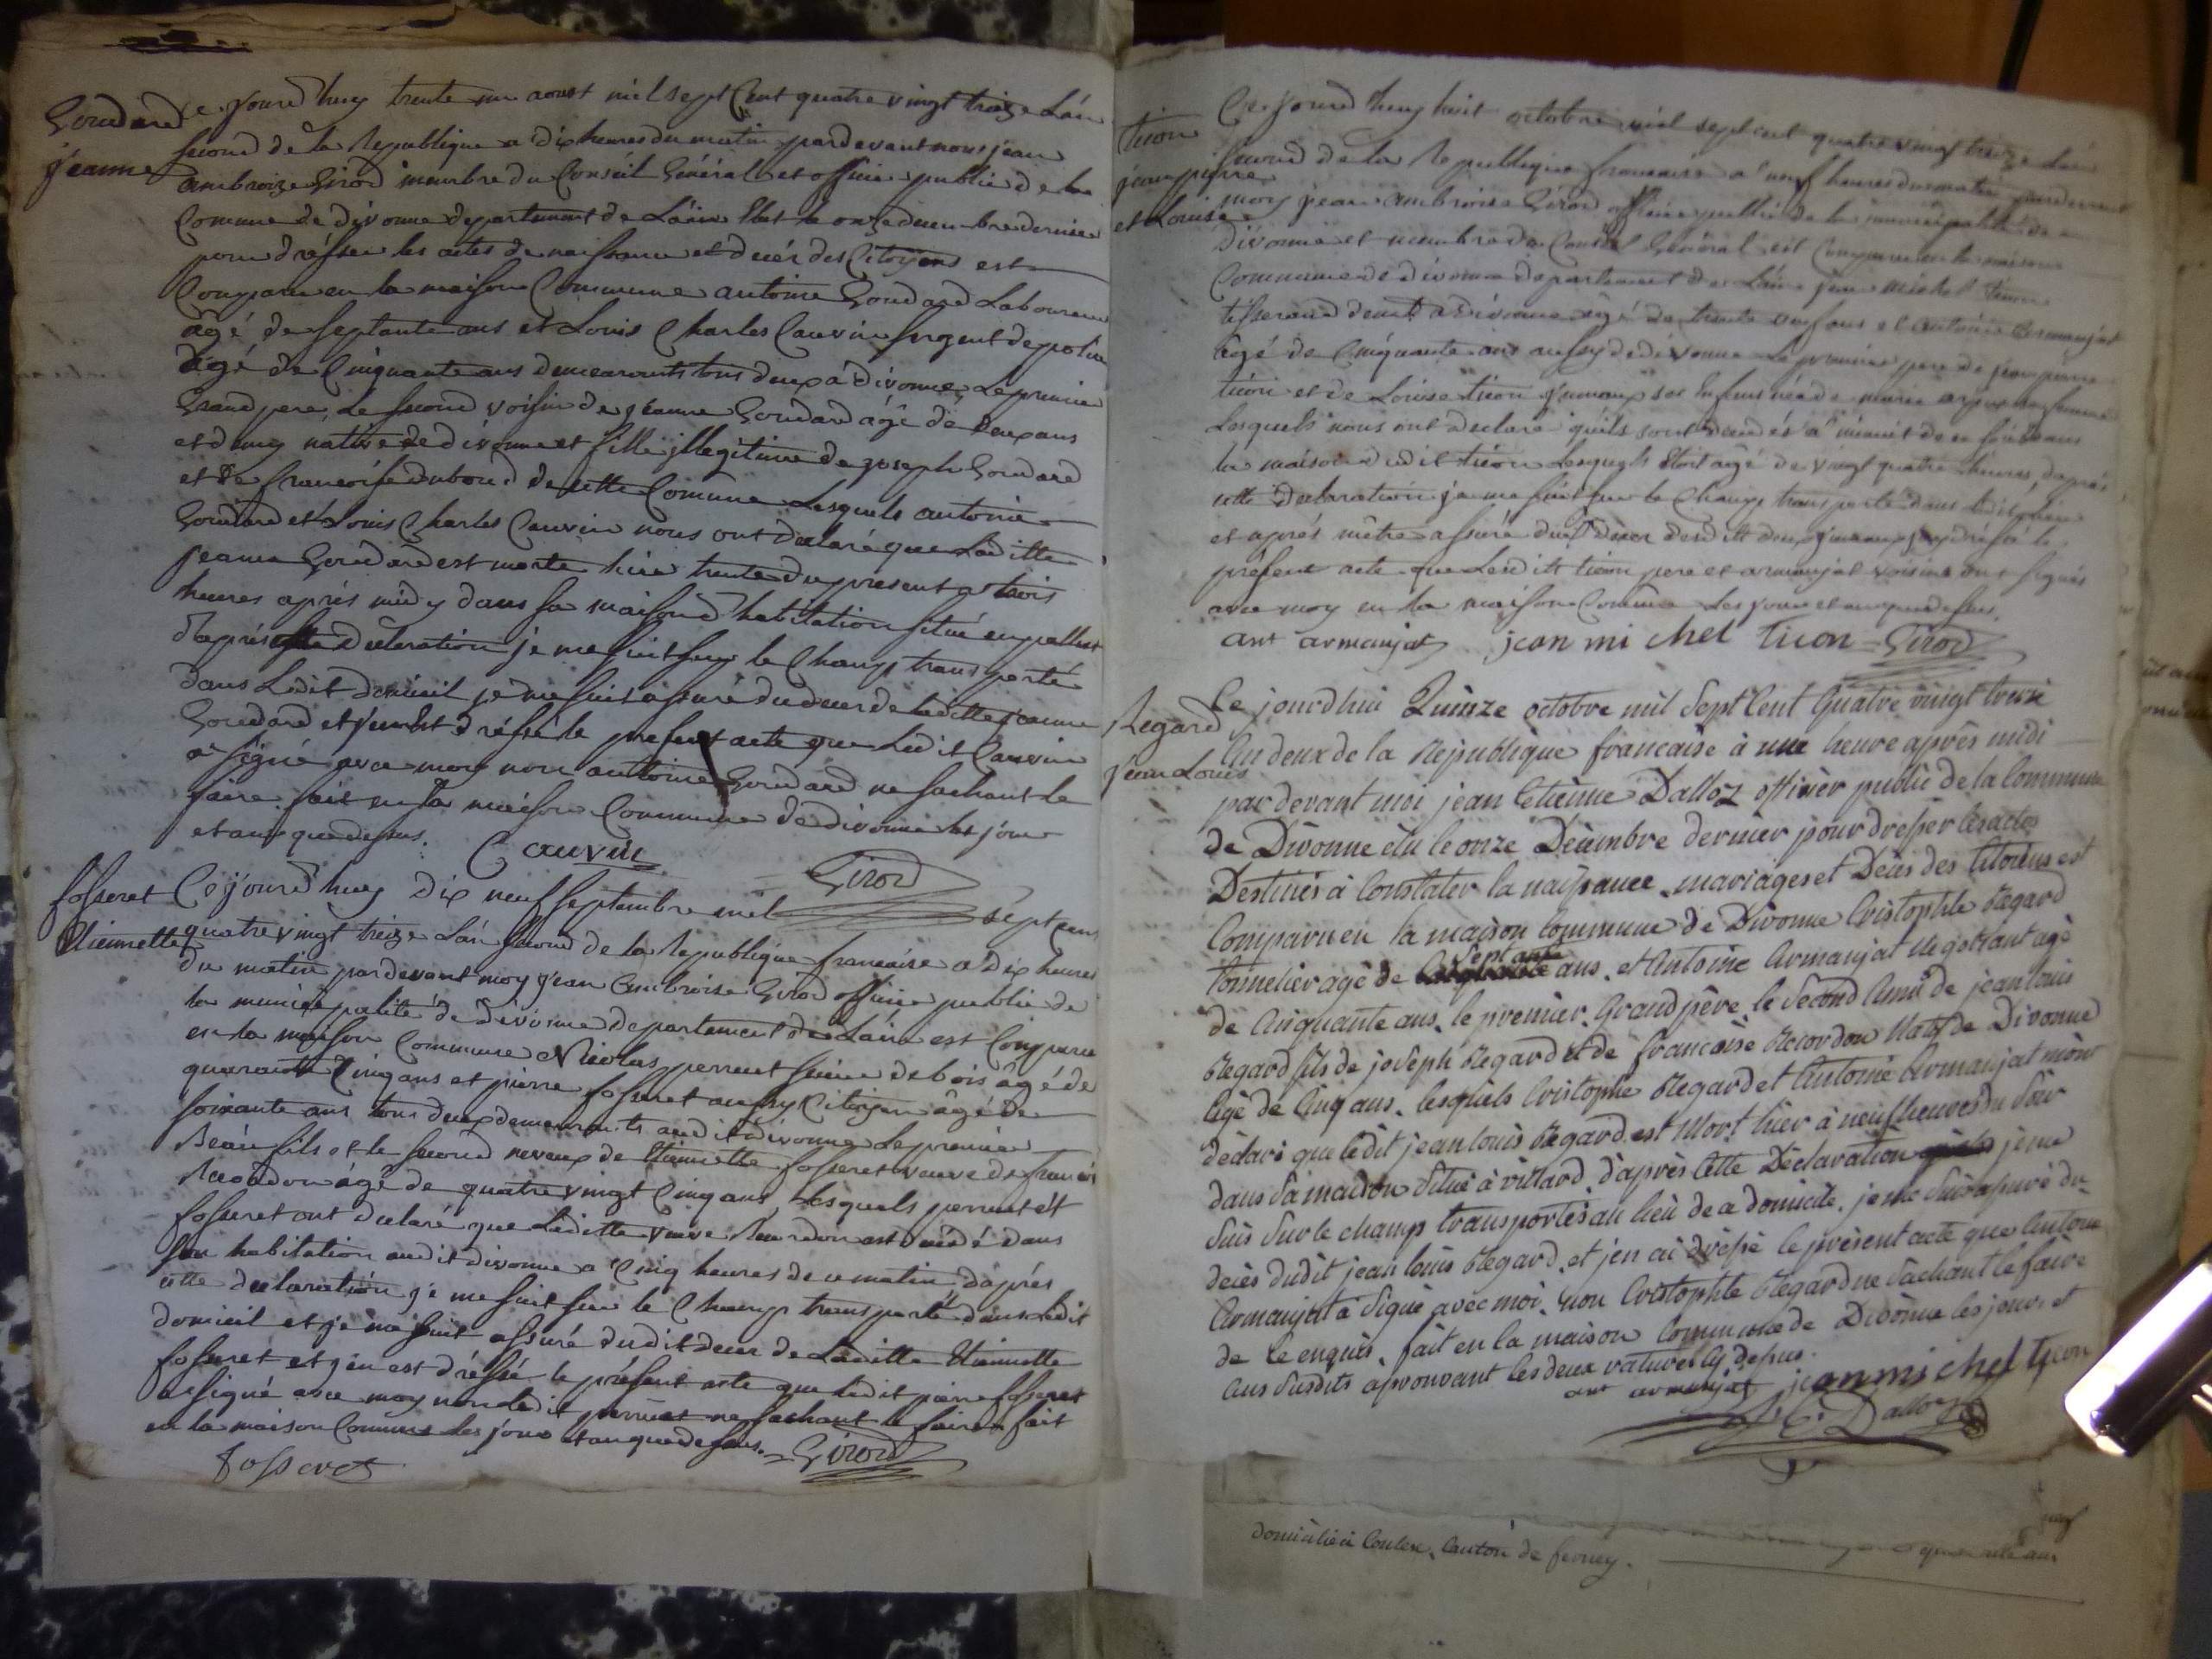 Goudard
jeanne
Ce jourd'huy trente un aoust mil sept Cent quatre vingt treize L'án
second de la Republique a dix heures du matin pardevant nous jean
ambroize Girod membre du Conséil Général et officier public de la
Comune de divonne departement de L'áin Elut le onze decembre dernier
pour drésser les actes de naissance et decés des Citoyens est
Comparu en la maison Commune antoine Goudard Laboureur
âgé de septante ans et Louis Charles Cauvin sergent de police
âgé de Cinquante ans demeurants tous deux a divonne, Le premier
Grand pere, Le second voisin de jeanne Goudard âgé de deux ans
et demy nátive de divonne et fille illegitime de joseph Goudard
et de francoise dubout de cette Comune Lesquels antoine
Goudard et Louis Charles Cauvin nous ont declaré que Laditte
jeanne Goudard est morte hier trente du present a trois
heures aprés midy dans sa maison d'habitation situé en
d'aprés cette declaration je me suit sur le Champ transporté
dans Ledit domicil je me suis assuré du deces de laditte jeanne
Goudard et j'en est dréssé le present acte que Ledit Cauvin
a signé avec moy non antoine Goudard ne sachant le
faire. fait en la maison Commune de divonne les jour
et ans que dessus.
Cauvin
Girod
fosseret
Etiennette
Ce jourd'huy dix neuf septembre mil sept cent
quatre vingt treize L'án second de la Republique francaise a dix heures
du matin pardevant moy jean Ambroise Girod officier public de
la municipalité de divonne departement de L'áin est Comparu
en la maison Commune Nicolas perruet scieur de bois âgé de
quarante Cinq ans et pierre fosseret aussy Citoyen âgé de
soixante ans tous deux demeurants audit divonne Le premier
Beau fils et le second neveux de Etiennette fosseret veuve de francois
Recordon âgé de quatre vingt Cinq ans, Lesquels perruet et
fosseret ont declaré que Laditte veuve Recordon est décédé dans
son habitation audit divonne a Cinq heures de ce matin, d'aprés
cette declaration je me suit sur le Champ transporté dans Ledit
domicil et je me suit assuré dudit deces de Laditte Etiennette
fosseret et j'en est dréssé le présent acte que ledit pierre fosseret
a signé avec moy non ledit perruet ne sachant le faire fait
en la maison Commune les jour et an que dessus.
Girod
fosseret
ticon
jean pierre
et Louise
Ce jourd'huy huit octobre mil sept cent quatre vingt treize L'án
second de la Republique francaise a neuf heures du matin pardevant
moy jean ambroise Girod officier public de la municipalité de
divonne et membre du Conseil Général est Comparu en la maison
Commune de divonne departement de L'áin jean michel ticon
tisserand demt. a divonne âgé de trente ans et antoine armanjat
âgé de Cinquante ans aussy de divonne Le premier pere de jean pierre
ticon et de Louise ticon jumeaux ses Enfans née de marie sa femme
Lesquels nous ont declaré qu'ils sont décédés a minuit dans
la maison dudit ticon Lesquels étoit âgé de vingt quatre heures, d'aprés
cette declaration je me suit sur le Champ transporté dans ledit
et aprés m'être assuré dud. déces desdits deux jumeaux j'ay dréssé le
présent acte que Lesdits ticon pere et armanjat voisins ont signés
avec moy en la maison Comune Les jour et an que dessus
ant armanjat jean mi chel ticon Girod
Regard
jean Louis
Ce jourd'hui Quinze octobre mil Sept Cent Quatre vingt treize
l'an deux de la République francaise à une heure après midi
par devant moi jean Etienne Dalloz officier public de la Commune
de Divonne élu le onze Décembre dernier pour dresser les actes
Destinés à Constater la naissance, mariages et Décès des Citoiens est
Comparu en la maison Commune de Divonne Cristophle Regard
tonnelier agé de septante ans, et Antoine Armanjat Negotiant agé
de Cinquante ans, le premier, Grand père, le Second Ami de jean louis
Regard fils de joseph Regard et de francoise Recordon Natif de Divonne
agé de Cinq ans, lesquels Cristophle Regard et Antoine Armanjat m'ont
déclaré que ledit jean louis Regard est Mort hier à neuf heures du Soir
dans Sa maison Situé à villard, d'après Cette Déclaration je me
Suis Sur le champ transportés au lieu de ce domicile, je me Suis assuré du
decès dudit jean louis Regard, et j'en ai dréssé le présent acte que Antoine
Armanjat a Signé avec moi, non Cristophle Regard ne Sachant le faire
de Ce enquis, fait en la maison Commune de Divonne les jour et
ans Susdits approuvant les deux ratures Cy dessus.
ant armanjat jean mi chel ticon
J. E. Dalloz
domicilié à Conlex, Canton de ferney.